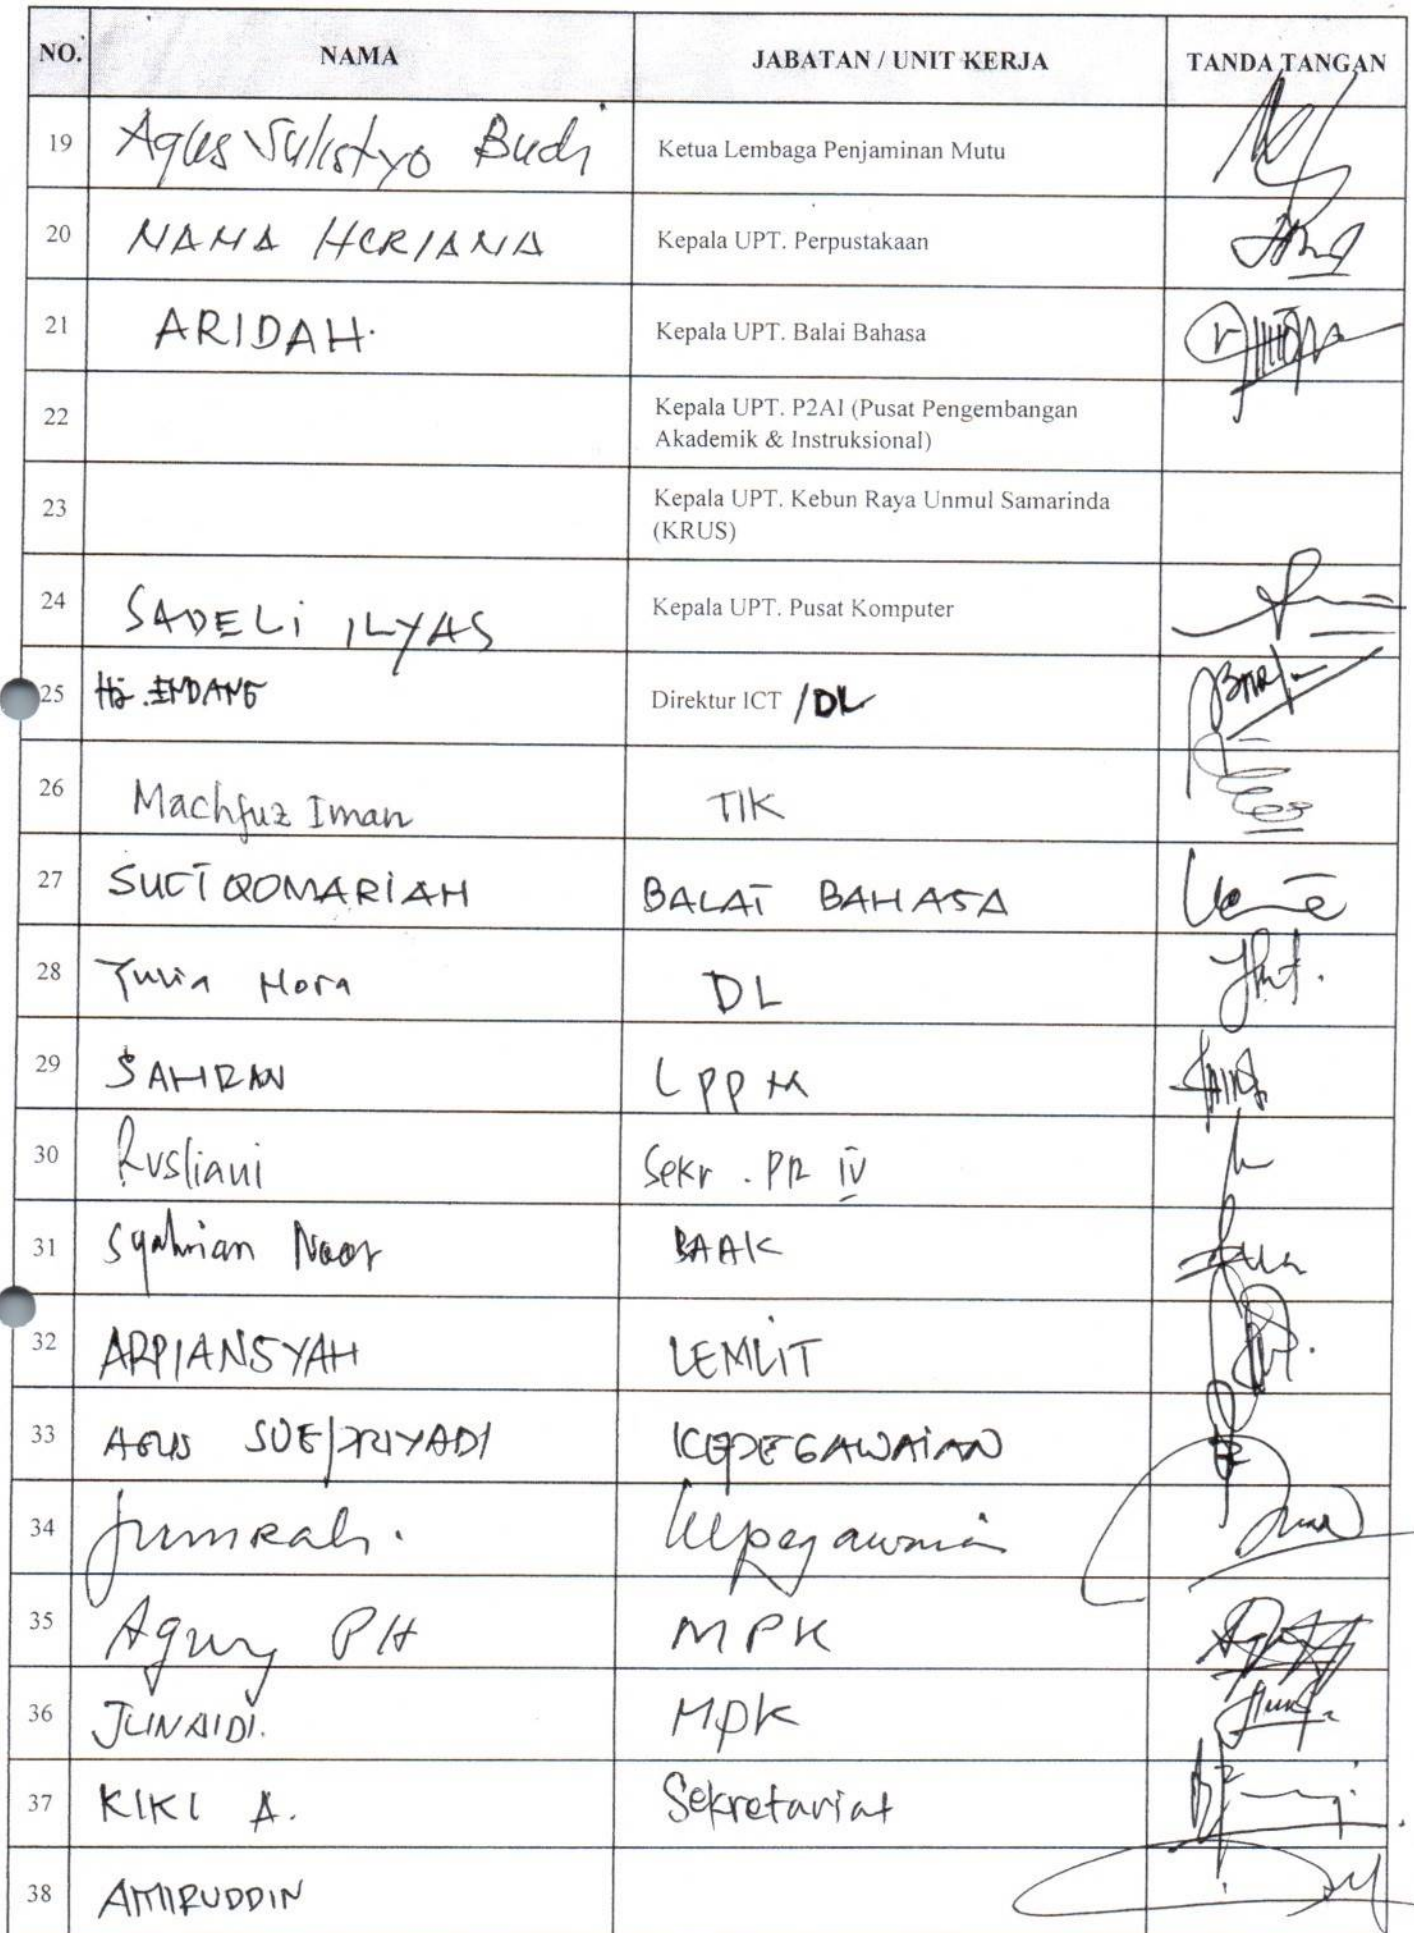 NO. NAMA JABATAN / UNIT KERJA TANDA TANGAN
19 Agus Sulistyo Budi Ketua Lembaga Penjaminan Mutu
20 NANA HERIANA Kepala UPT. Perpustakaan
21 ARIDAH. Kepala UPT. Balai Bahasa
22 Kepala UPT. P2AI (Pusat Pengembangan
Akademik & Instruksional)
23 Kepala UPT. Kebun Raya Unmul Samarinda
(KRUS)
24 SADELI ILYAS Kepala UPT. Pusat Komputer
25 Hj. ENDANG Direktur ICT /DL
26 Machfuz Iman TIK
27 SUCI QOMARIAH BALAI BAHASA
28 Yulia Nora DL
29 SAHRAN LPPM
30 Rusliani Sekr. PR IV
31 Syahrian Noor BAAK
32 ARPIANSYAH LEMLIT
33 AGUS SOEPRIYADI KEPEGAWAIAN
34 Jumrah. Kepegawaian
35 Agung PH MPK
36 JUNAIDI. MPK
37 KIKI A. Sekretariat
38 AMIRUDDIN